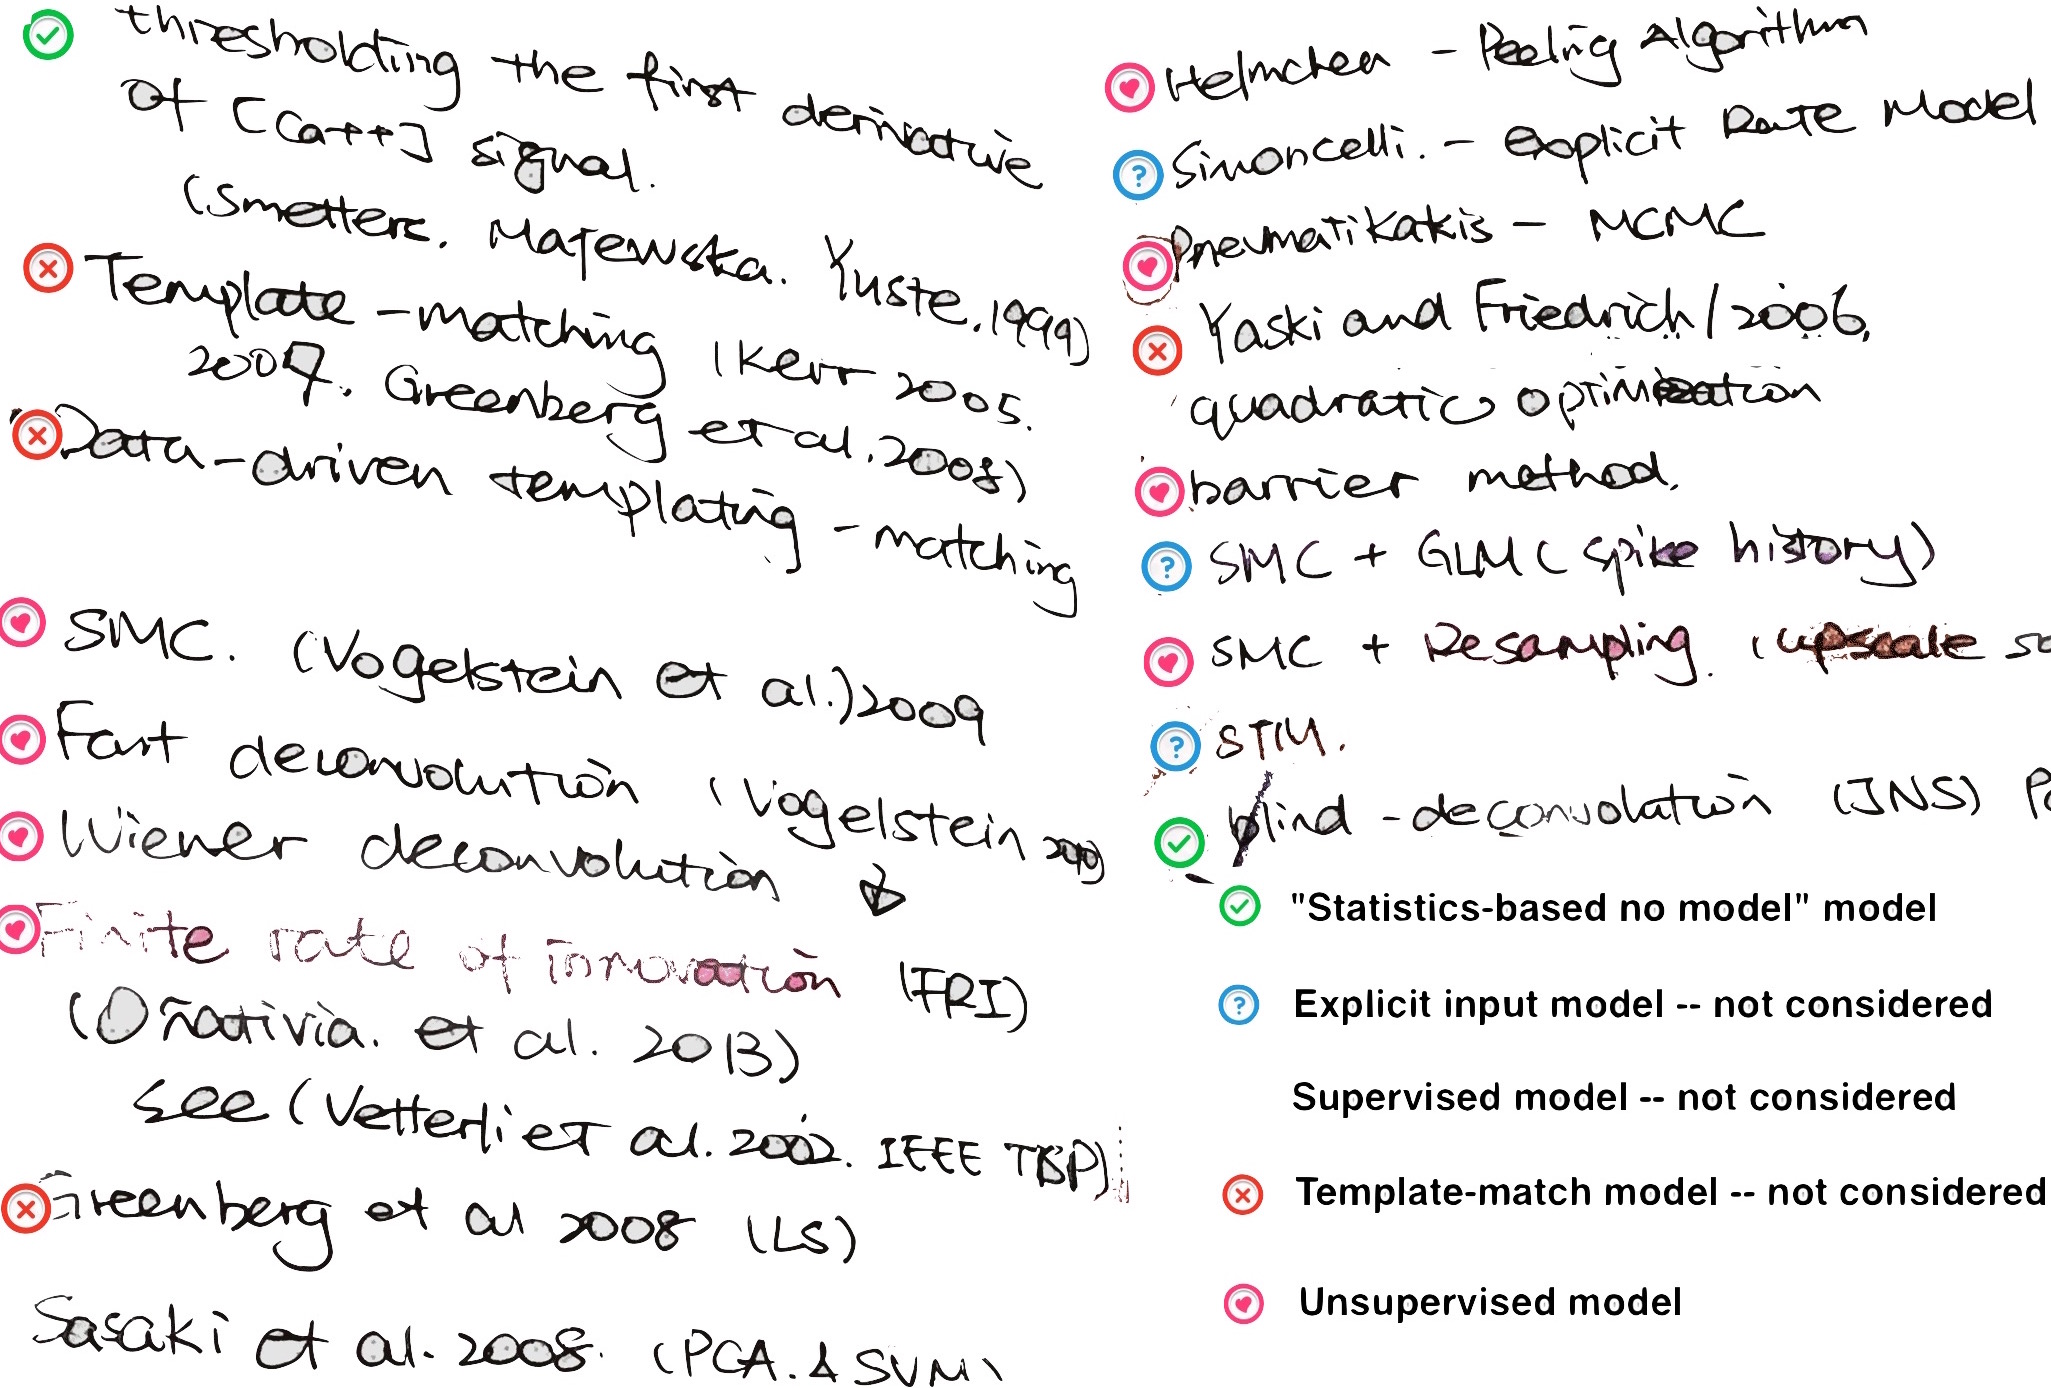 thresholding the first derivative
of [Ca++] signal.
(Smetters. Majewska. Yuste. 1999)
Template-matching (Kerr 2005.
2007. Greenberg et al. 2008)
Data-driven templating-matching
SMC. (Vogelstein et al.) 2009
Fast deconvolution (Vogelstein
Wiener deconvolution
Finite rate of innovation (FRI)
(Oñativia. et al. 2013)
see (Vetterli et al. 2002. IEEE
Greenberg et al 2008 (LS)
Sasaki et al. 2008. (PCA. & SVM)
Helmchen - Peeling Algorithm
Simoncelli. - Explicit Rate Model
Pneumatikakis - MCMC
Yaski and Friedrich / 2006,
quadratic optimization
barrier method.
SMC + GLM (spike history)
SMC + Resampling. (upscale
STM.
blind-deconvolution (JNS)
"Statistics-based no model" model
Explicit input model -- not considered
Supervised model -- not considered
Template-match model -- not considered
Unsupervised model